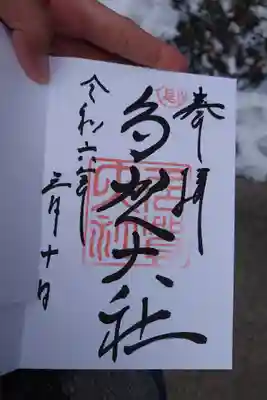 奉拝
多賀大社
令和六年
三月十日